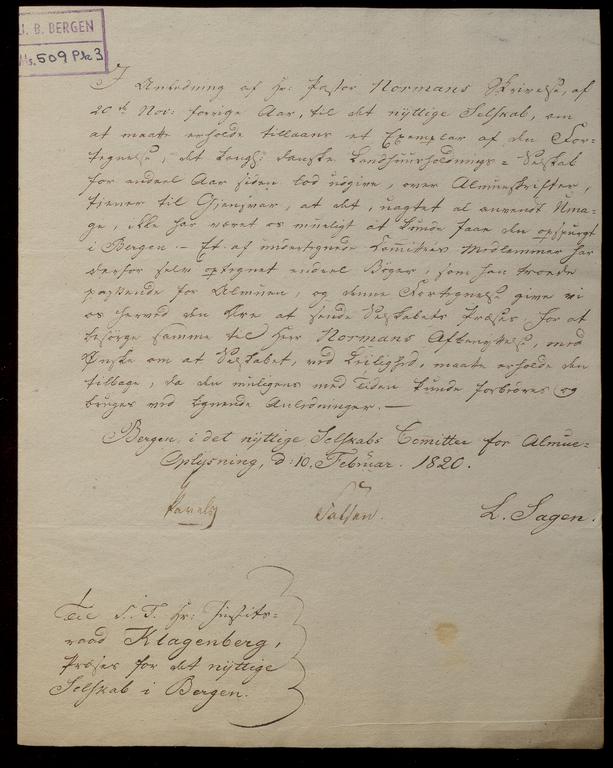 U. B. BERGEN
Ms. 509 Pk 3
I Anledning af Hr: Pastor Normans Skrivelse, af
20de Nov: forrige Aar, til det nyttige Selskab, om
at maatte erholde tillaans et Exemplar af den For-
tegnelse, det Kongl: danske Landhuusholdnings-Selskab
for endeel Aar siden lod udgive, over Almueskrifter,
tjener til Gjensvar, at det, uagtet al anvendt Uma-
ge, ikke har været os mueligt at kunde faae den opspurgt
i Bergen. - Et af undertegnede Comitees Medlemmer har
derfor selv optegnet endeel Bøger, som han troede
passende for Almuen, og denne Fortegnelse give vi
os herved den Ære at sende Selskabets Præses, for at
besørge samme til Herr Normans Afbenyttelse, med
Ønske om at Selskabet, ved Leilighed, maatte erholde den
tilbage, da den muligens med Tiden kunde forbedres og
bruges ved lignende Anledninger. -
Bergen, i det nyttige Selskabs Comittee for Almue-
Oplysning, d: 10. Februar. 1820.
Pavels L. Sagen.
Til S. T. Hr: Justits-
raad Klagenberg,
Præses for det nyttige
Selskab i Bergen.